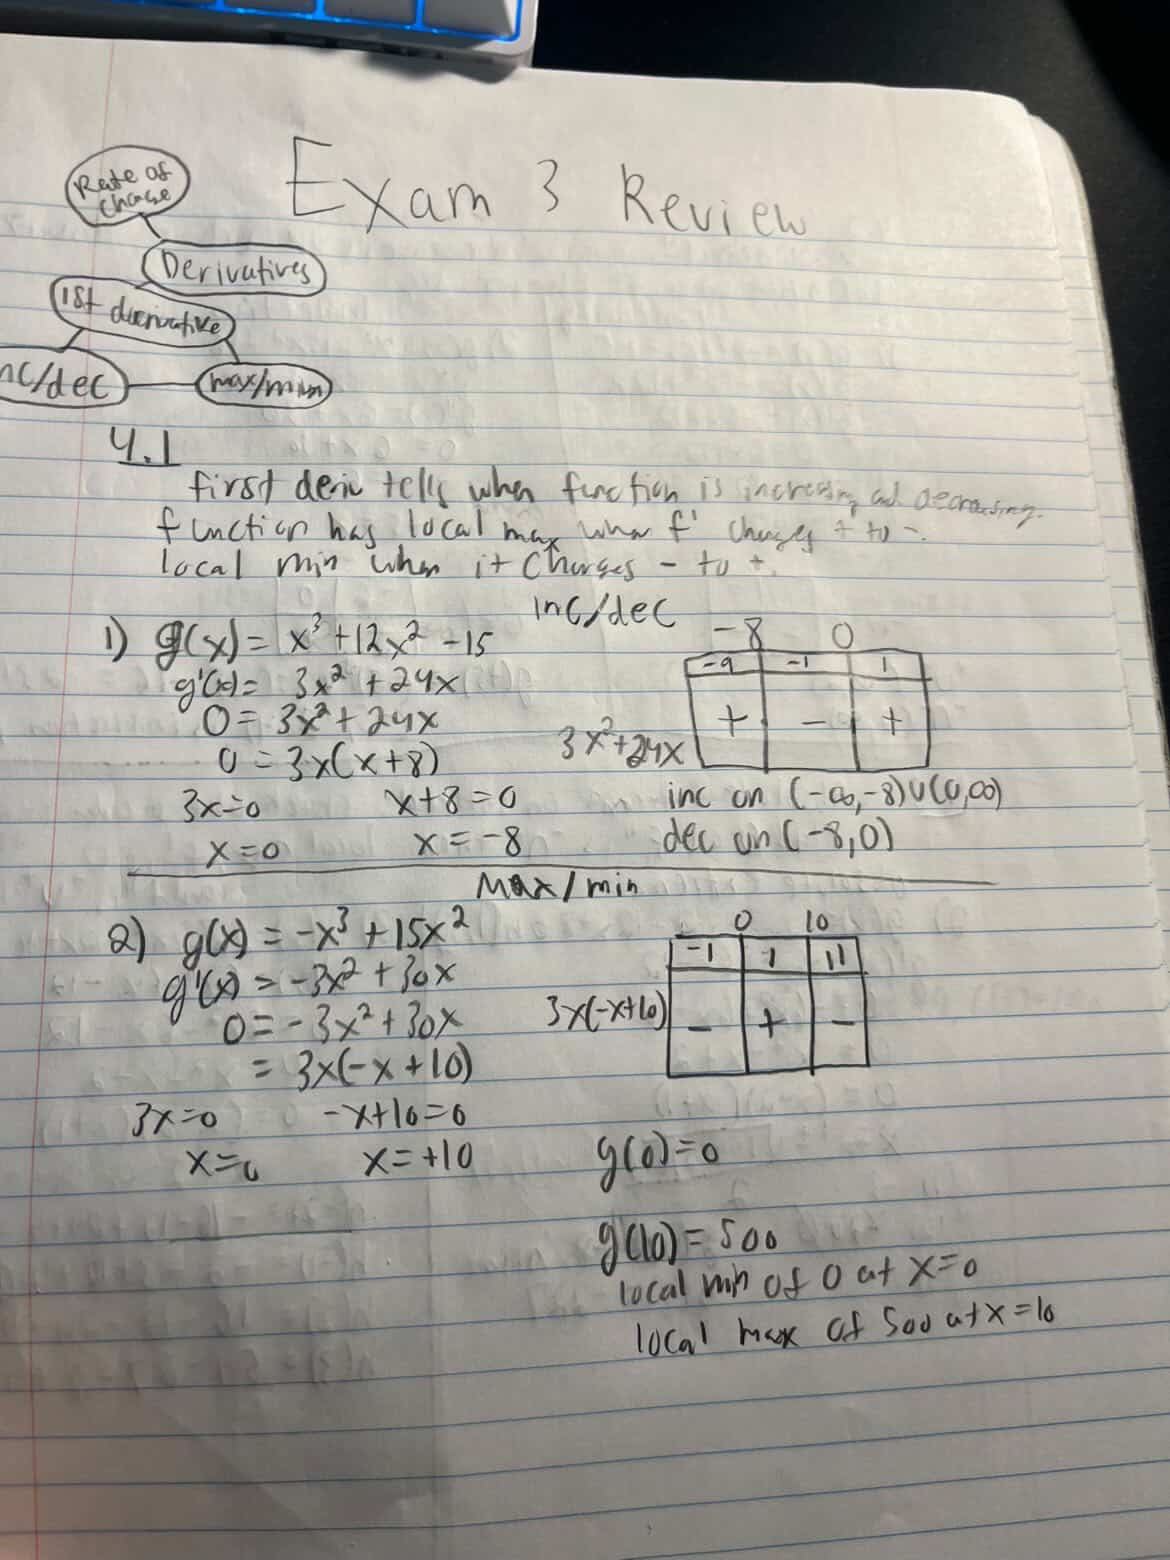 Exam 3 Review
Rate of
change
Derivatives
1st derivative
nc/dec
max/min
4.1
first deriv tells when function is increasing and decreasing.
function has local max when f' changes + to -.
local min when it changes - to +.
inc/dec
1) g(x) = x³ + 12x² - 15
g'(x) = 3x² + 24x
0 = 3x² + 24x
0 = 3x(x+8)
3x=0 x+8=0
x=0 x=-8
-8 0
-9 -1 1
3x²+24x + - +
inc on (-∞,-8)∪(0,∞)
dec on (-8,0)
Max/min
2) g(x) = -x³ + 15x²
g'(x) = -3x² + 30x
0 = -3x² + 30x
= 3x(-x+10)
3x=0 -x+10=0
x=0 x=+10
0 10
-1 1 11
3x(-x+10) - + -
g(0)=0
g(10)=500
local min of 0 at x=0
local max of 500 at x=10